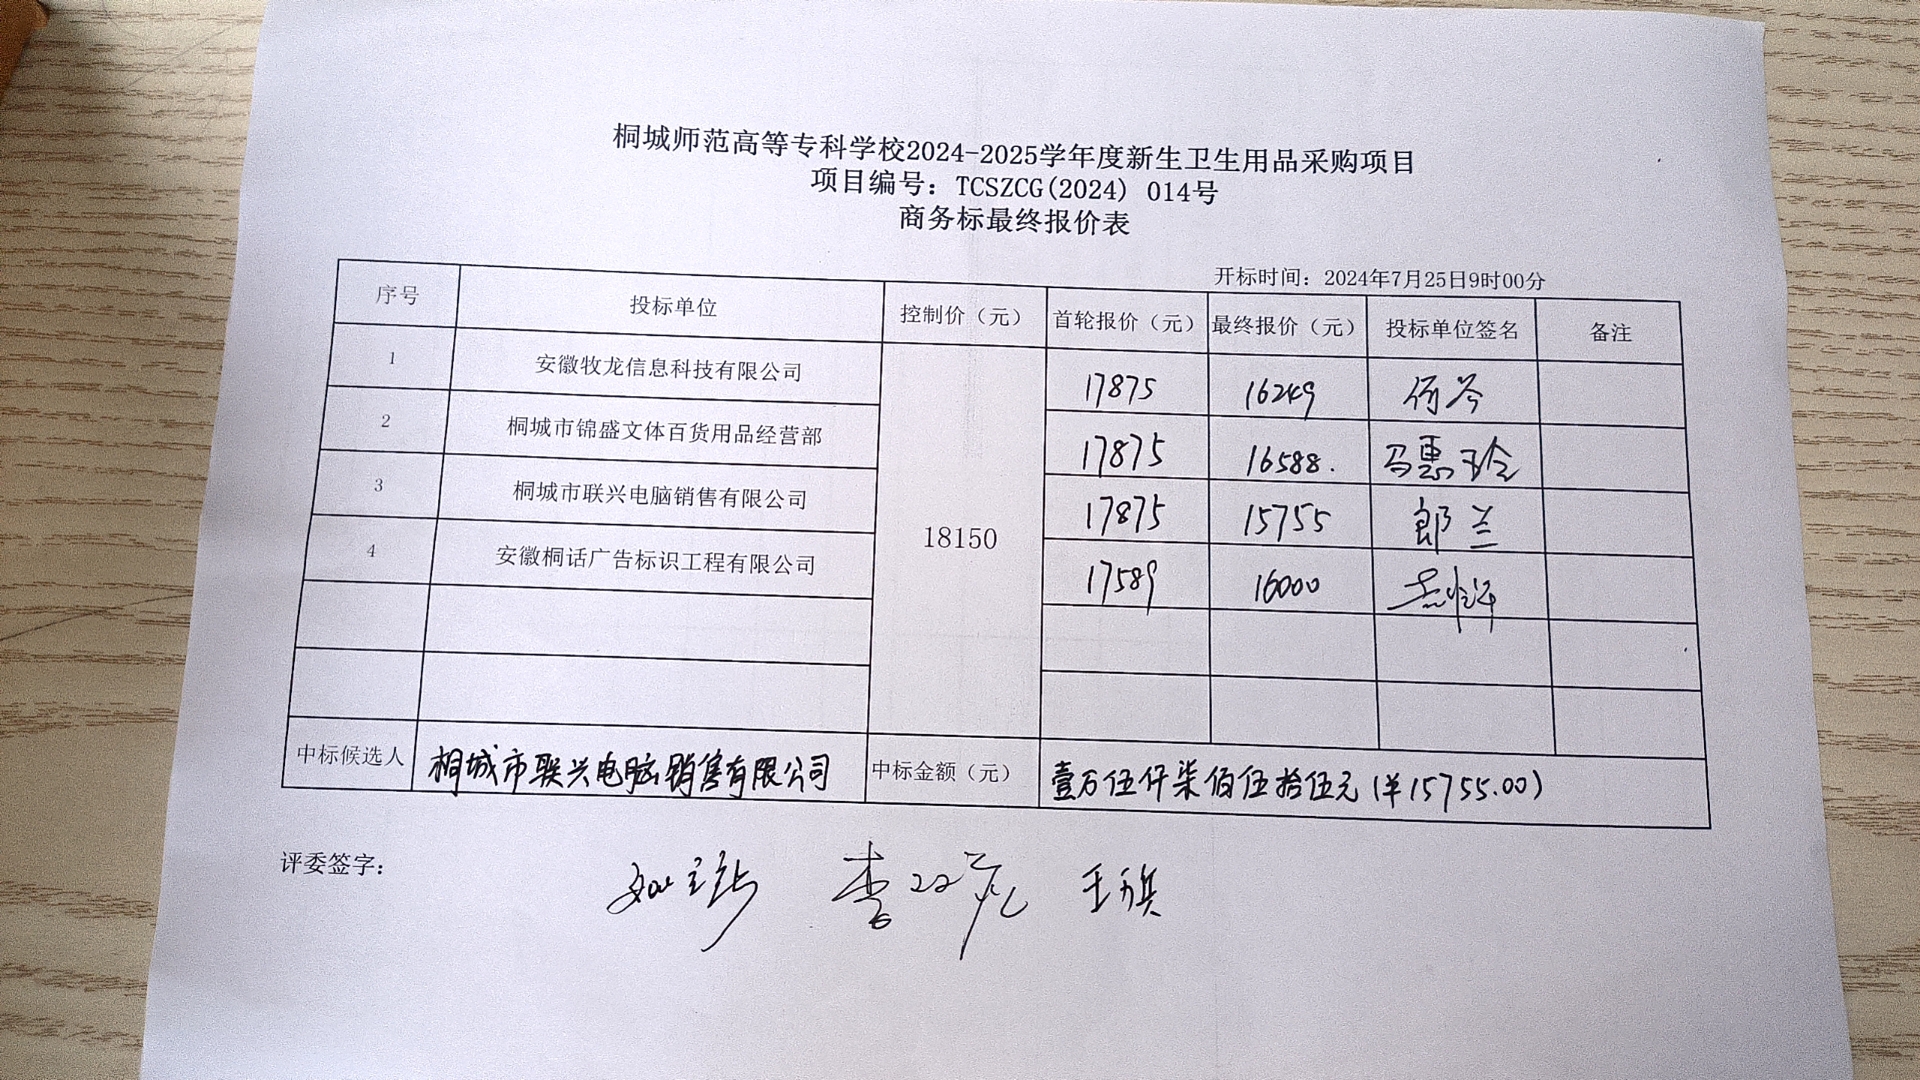 桐城师范高等专科学校2024-2025学年度新生卫生用品采购项目
项目编号：TCSZCG(2024) 014号
商务标最终报价表
开标时间：2024年7月25日9时00分
序号 投标单位 控制价（元） 首轮报价（元） 最终报价（元） 投标单位签名 备注
1 安徽牧龙信息科技有限公司 17875 16249
2 桐城市锦盛文体百货用品经营部 17875 16588. 马惠玲
3 桐城市联兴电脑销售有限公司 17875 15755 郎兰
18150
4 安徽桐话广告标识工程有限公司 17589 16000
中标候选人 桐城市联兴电脑销售有限公司 中标金额（元） 壹万伍仟柒佰伍拾伍元(¥15755.00)
评委签字：